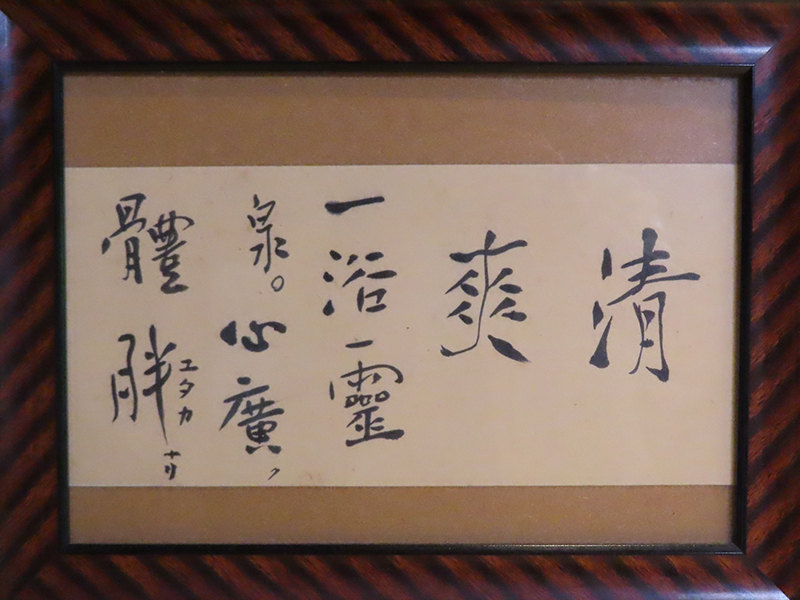 清
爽
一浴靈
泉。心廣、
體胖
ユタカ
ナリ